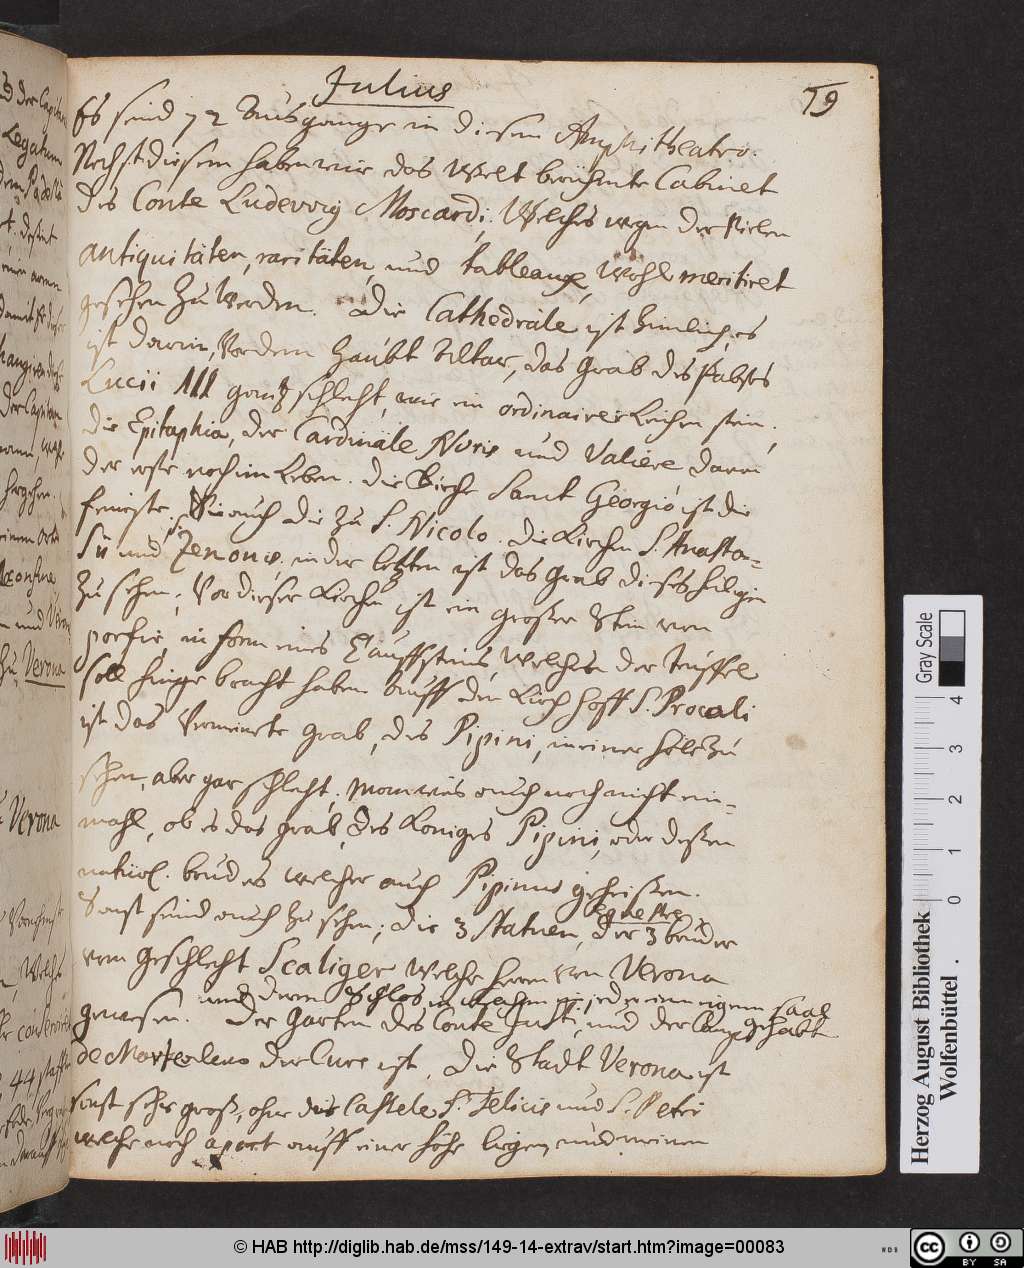 Julius
79
Es seind 72 Ausgänge in diesem Amphitheatro.
Nechst diesem haben wir das Welt berühmte Cabinet
des Conte Ludevvig Moscardi, Welches wegen der Vielen
antiquitäten, raritäten, und tableaux, Wohl meritiret
gesehen Zu Werden. Die Cathedrale ist Zimlich, es
ist darin, Vor dem Haubt Altar, das grab des Pabstes
Lucii III gantz schlecht, wie ein ordinairer Leichen stein,
die Epitaphia, der Cardinäle Noris und Valiere, davon
der erste noch im Leben. die Kirche Sanct Georgio ist die
feineste. Wie auch die zu S. Nicolo. die Kirchen S. Anasta-
sii und S. Zenonis. in der letzten ist das grab dieses heiligen
Zu sehen; Vor dieser Kirche ist ein großer Stein von
porfir, in form eines Tauffsteins, Welchen der teuffel
soll hinge bracht haben. Auff den Kirch hoff S. Procoli
ist das Vermeinte grab, des Pipini, in einer höle Zu
sehen, aber gar schlecht, man weis auch noch nicht ein-
mahl, ob es das grab, des Königes Pipini, oder deßen
natürl. bruders welcher auch Pipinus geheißen.
Sonst seind auch Zu sehen; die 3 Statuen equestre der 3 brüder
vom geschlecht Scaliger welche herrn von Verona
gewesen. und deren Schlos in welchen ein jeder einen eigenen Saal gehabt
Der Garten des Conte Justi, und der Campo
de Marte alwo die Cure ist. Die Stadt Verona ist
sonst sehr groß, ohne die Castele S. Felicis und S. Petri
welche noch apart auff einer höhe liegen, und meinen
Verona
Verona
Herzog August Bibliothek
Wolfenbüttel
Gray Scale
0 1 2 3 4
© HAB http://diglib.hab.de/mss/149-14-extrav/start.htm?image=00083
cc BY SA